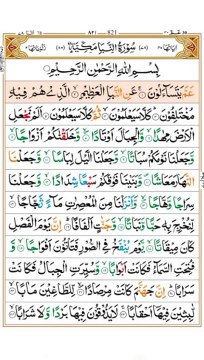 821
سُوْرَةُ النَّبَاِ مَكِّيَّةٌ
بِسْمِ اللّٰهِ الرَّحْمٰنِ الرَّحِيْمِ
عَمَّ يَتَسَآءَلُوْنَ ۝ عَنِ النَّبَاِ الْعَظِيْمِ ۝ الَّذِيْ هُمْ فِيْهِ
مُخْتَلِفُوْنَ ۝ كَلَّا سَيَعْلَمُوْنَ ۝ ثُمَّ كَلَّا سَيَعْلَمُوْنَ ۝ اَلَمْ نَجْعَلِ
الْاَرْضَ مِهٰدًا ۝ وَّالْجِبَالَ اَوْتَادًا ۝ وَّخَلَقْنٰكُمْ اَزْوَاجًا ۝ وَّ
جَعَلْنَا نَوْمَكُمْ سُبَاتًا ۝ وَّجَعَلْنَا الَّيْلَ لِبَاسًا ۝ وَّجَعَلْنَا
النَّهَارَ مَعَاشًا ۝ وَّبَنَيْنَا فَوْقَكُمْ سَبْعًا شِدَادًا ۝ وَّجَعَلْنَا
سِرَاجًا وَّهَّاجًا ۝ وَّاَنْزَلْنَا مِنَ الْمُعْصِرٰتِ مَآءً ثَجَّاجًا ۝
لِّنُخْرِجَ بِهٖ حَبًّا وَّنَبَاتًا ۝ وَّجَنّٰتٍ اَلْفَافًا ۝ اِنَّ يَوْمَ الْفَصْلِ
كَانَ مِيْقَاتًا ۝ يَّوْمَ يُنْفَخُ فِي الصُّوْرِ فَتَاْتُوْنَ اَفْوَاجًا ۝ وَّ
فُتِحَتِ السَّمَآءُ فَكَانَتْ اَبْوَابًا ۝ وَّسُيِّرَتِ الْجِبَالُ فَكَانَتْ
سَرَابًا ۝ اِنَّ جَهَنَّمَ كَانَتْ مِرْصَادًا ۝ لِّلطَّاغِيْنَ مَاٰبًا ۝
لّٰبِثِيْنَ فِيْهَآ اَحْقَابًا ۝ لَا يَذُوْقُوْنَ فِيْهَا بَرْدًا وَّلَا شَرَابًا ۝